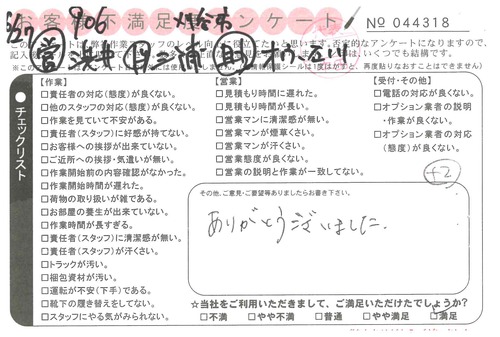 5/27 906
お客様不満足アンケート
No 044318
営
三浦
チェックリスト
【作業】
□責任者の対応(態度)が良くない。
□他のスタッフの対応(態度)が良くない。
□作業を見ていて不安がある。
□責任者(スタッフ)に好感が持てない。
□お客様への挨拶が出来ていない。
□ご近所への挨拶・気遣いが無い。
□作業開始前の内容確認がなかった。
□作業開始時間が遅れた。
□荷物の取り扱いが雑である。
□お部屋の養生が出来ていない。
□作業時間が長すぎる。
□責任者(スタッフ)に清潔感が無い。
□責任者(スタッフ)が汗くさい。
□トラックが汚い。
□梱包資材が汚い。
□運転が不安(下手)である。
□靴下の履き替えをしてない。
□スタッフにやる気がみられない。
【営業】
□見積もり時間に遅れた。
□見積もり時間が長い。
□営業マンに清潔感が無い。
□営業マンが煙草くさい。
□営業マンが汗くさい。
□営業態度が良くない。
□営業の説明と作業が一致してない。
【受付・その他】
□電話の対応が良くない。
□オプション業者の説明
・作業が良くない。
□オプション業者の対応
(態度)が良くない。
+2
その他、ご意見・ご要望等ありましたらお書き下さい。
ありがとうございました。
☆当社をご利用いただきまして、ご満足いただけたでしょうか?
□不満 □やや不満 □普通 □やや満足 □満足